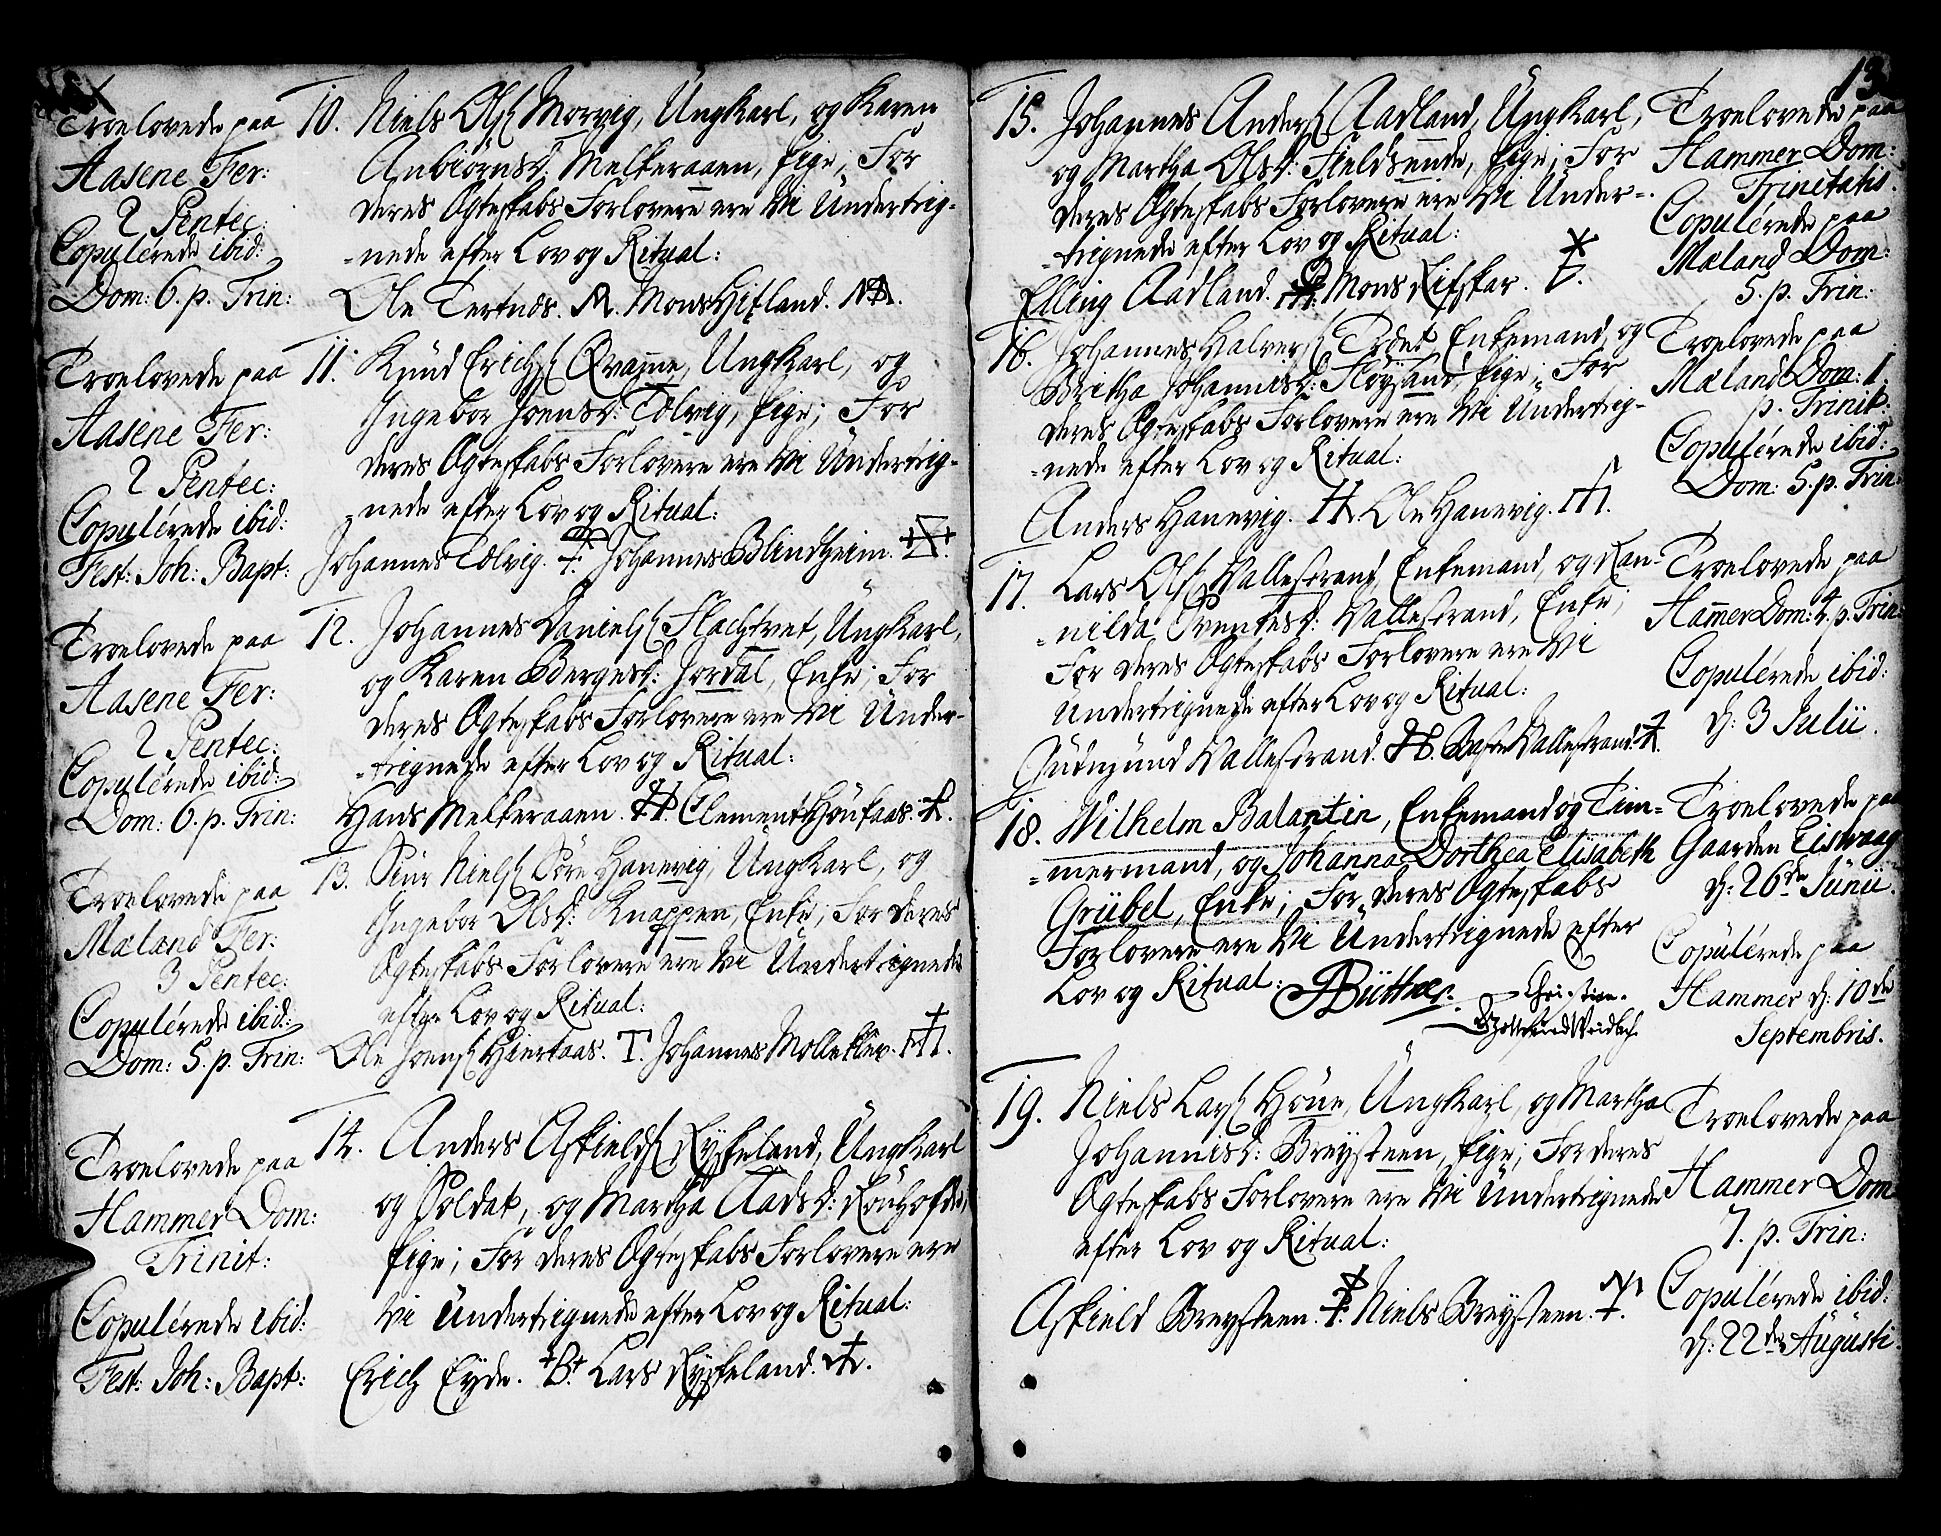 Troelovede paa
Aasene Fer:
2 Pentec:
Copulérede ibid:
Dom: 6. p. Trin:
10. Niels Ols: Morvig, Ungkarl, og Karen
Anbiörnsd: Melkeraaen, Pige; For
deres Ægteskabs Forlovere ere Vi Underteg-
-nede efter Lov og Ritual:
Ole Tertnæs. Mons Hitland.
Troelovede paa
Aasene Fer:
2 Pentec:
Copulérede ibid:
Fest: Joh: Bapt:
11. Knud Erichs: Qvamme, Ungkarl, og
Ingebor Joensd: Tolvig, Pige; For
deres Ægteskabs Forlovere ere Vi Underteg-
-nede efter Lov og Ritual:
Johannes Tolvig. Johannes Blindheim.
Troelovede paa
Aasene Fer:
2 Pentec:
Copulérede ibid:
Dom: 6. p. Trin:
12. Johannes Daniels: Flachtvet, Ungkarl,
og Karen Børgesd: Jordal, Enke; For
deres Ægteskabs Forlovere ere Vi Under-
-tegnede efter Lov og Ritual:
Hans Melkeraaen. Clement Høufaas.
Troelovede paa
Mæland Fer:
3 Pentec:
Copulérede ibid:
Dom: 5. p. Trin:
13. Siur Niels: Søre Hanevig, Ungkarl, og
Ingebor Olsd: Knappen, Enke; For deres
Ægteskabs Forlovere ere Vi Undertegnede
efter Lov og Ritual:
Ole Joens: Hiertaas. T. Johannes Mollekler.
Troelovede paa
Hammer Dom:
Trinit:
Copulérede ibid:
Fest: Joh: Bapt:
14. Anders Askields: Rypeland, Ungkarl
og Soldat, og Martha Aadsd:
Pige; For deres Ægteskabs Forlovere ere
Vi Undertegnede efter Lov og Ritual:
Erich Eyde. B. Lars Rypeland.
13
15. Johannes Anders: Aadland, Ungkarl,
og Martha Olsd: Fieldsende, Pige; For
deres Ægteskabs Forlovere ere Vi Under-
-tegnede efter Lov og Ritual:
Elling Aadland. Mons Rifskar.
Troelovede paa
Hammer Dom:
Trinitatis.
Copulérede paa
Mæland Dom:
5. p. Trin:
16. Johannes Halvers: Enkemand, og
Britha Johannisd: Fløysand, Pige; For
deres Ægteskabs Forlovere ere Vi Underteg-
-nede efter Lov og Ritual:
Anders Hanevig. Ole Hanevig.
Troelovede paa
Mæland Dom: 1
p. Trinit:
Copulérede ibid:
Dom: 5. p. Trin:
17. Lars Ols: Vallestrand, Enkemand, og Ran-
-nilda Svendesd: Vallestrand, Enke;
For deres Ægteskabs Forlovere ere Vi
Undertegnede efter Lov og Ritual:
Gudmund Vallestrand. Vallestrand.
Troelovede paa
Hammer Dom: 4. p. Trin:
Copulérede ibid:
d: 3 Julii.
18. Wilhelm Balantin, Enkemand og Tim-
-mermand, og Johanna Dorthea Elisabeth
Grübel, Enke; For deres Ægteskabs
Forlovere ere Vi Undertegnede efter
Lov og Ritual: Büttner.
Christian
Troelovede paa
Gaarden Eisvaag
d: 26de Junii.
Copulérede paa
Hammer d: 10de
Septembris.
19. Niels Lars: Høue, Ungkarl, og Martha
Johannisd: Breysteen, Pige; For deres
Ægteskabs Forlovere ere Vi Undertegnede
efter Lov og Ritual:
Askield Breysteen. Niels Breysteen.
Troelovede paa
Hammer Dom:
7. p. Trin:
Copulérede ibid:
d: 22de Augusti.